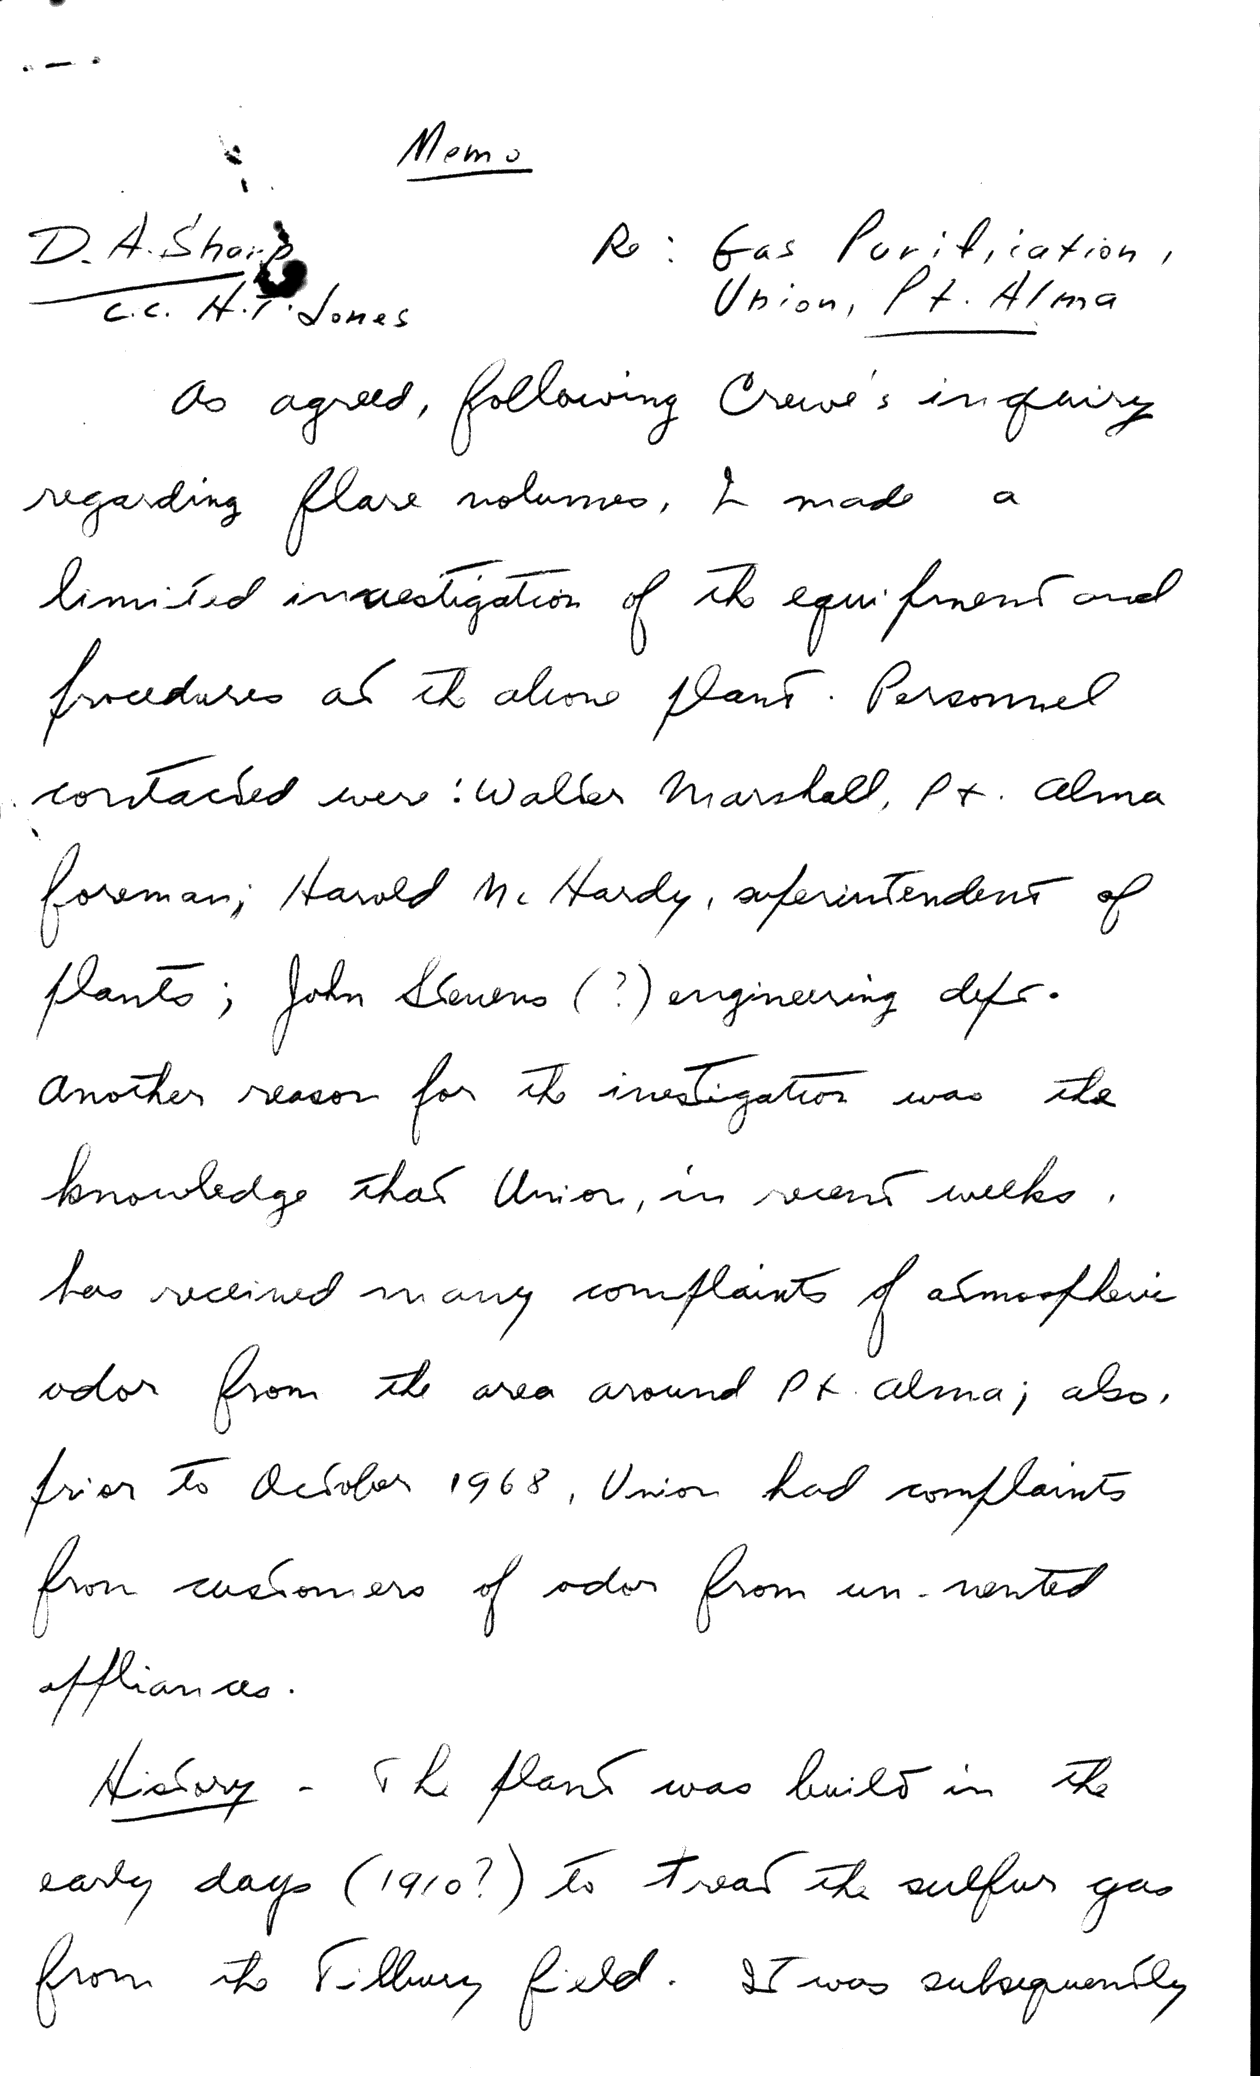 Memo
D. A. Sharp
Re: Gas Purification,
c.c. H.T. Jones
Union, Pt. Alma
As agreed, following Crewe's inquiry
regarding flare volumes, I made a
limited investigation of the equipment and
procedures at the above plant. Personnel
contacted were: Walter Marshall, Pt. Alma
foreman; Harold McHardy, superintendent of
plants; John Stevens (?) engineering dept.
Another reason for the investigation was the
knowledge that Union, in recent weeks,
has received many complaints of atmospheric
odor from the area around Pt. Alma; also,
prior to October 1968, Union had complaints
from customers of odor from un-vented
appliances.
History - The plant was built in the
early days (1910?) to treat the sulfur gas
from the Tilbury field. It was subsequently